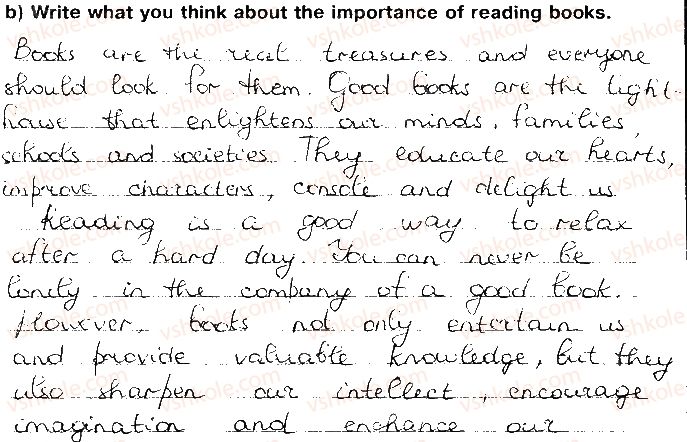 b) Write what you think about the importance of reading books.
Books are the real treasures and everyone
should look for them. Good books are the light-
house that enlightens our minds, families,
schools and societies. They educate our hearts,
improve characters, console and delight us
Reading is a good way to relax
after a hard day. You can never be
lonely in the company of a good book.
However, books not only entertain us
and provide valuable knowledge, but they
also sharpen our intellect, encourage
imagination and enchance our